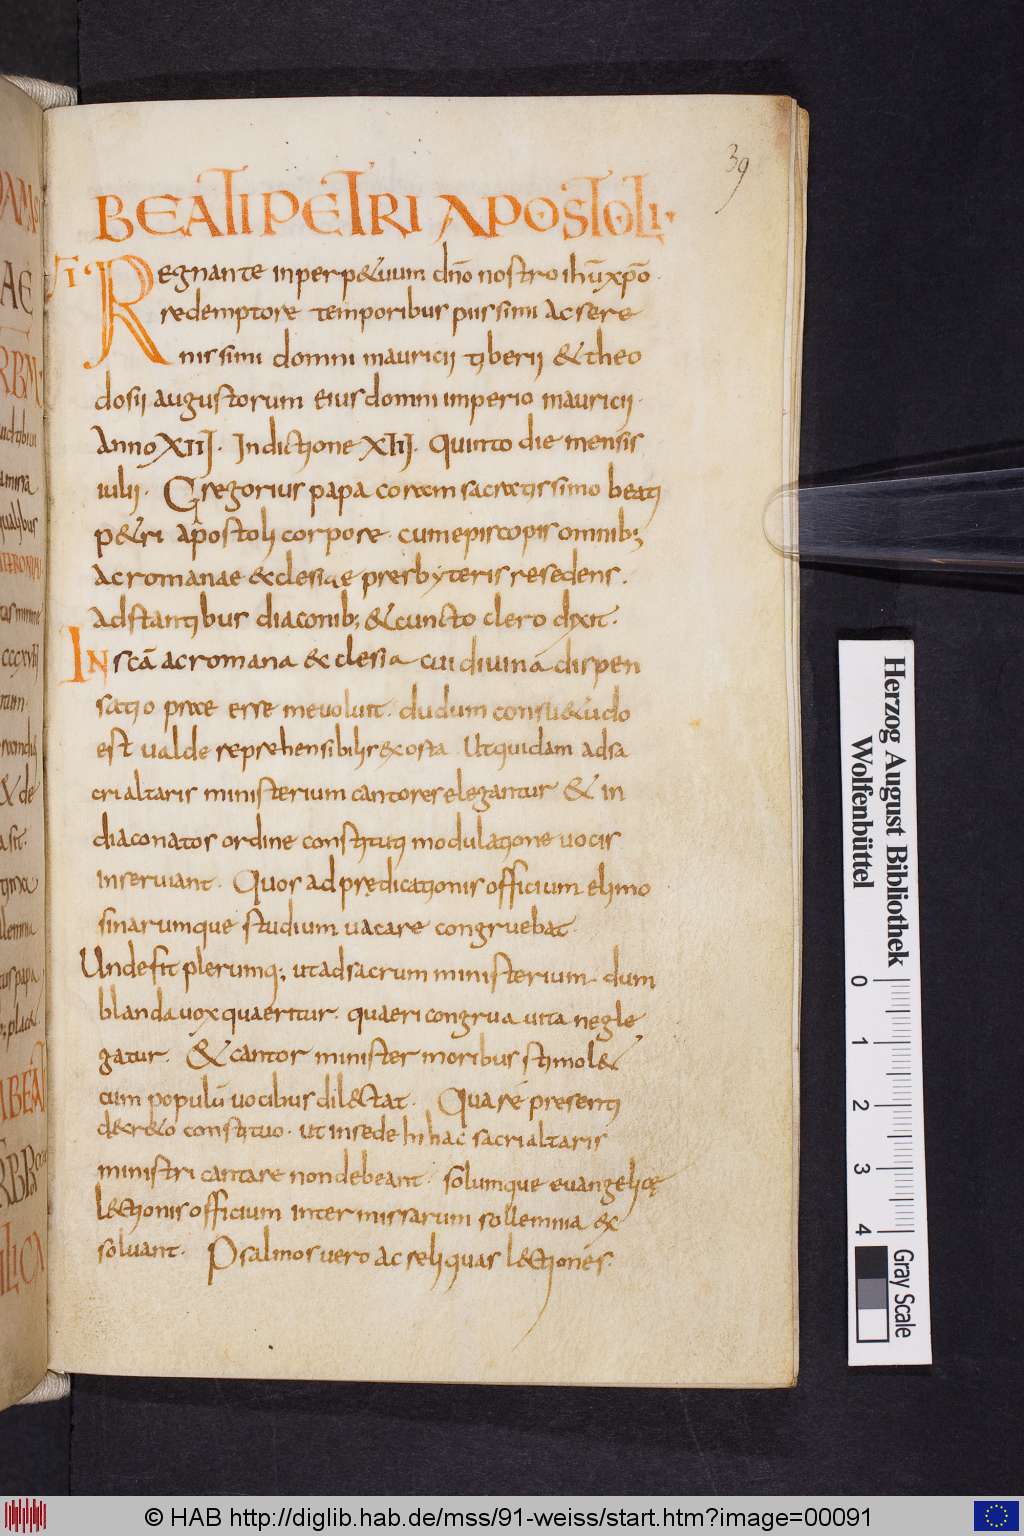 39
BEATI PETRI APOSTOLI·
I Regnante inperp&uum dño nostro ihū xp̄o·
redemptore temporibus piissimi ac sere
nissimi domni mauricii tiberii & theo
dosii augustorum eius domni imperio mauricii·
Anno XIII· Indictione XIII· Quinto die mensis
iulii· Gregorius papa coram sacratissimo beati
p&ri apostoli corpore· cum episcopis omnib;
ac romanae &clesiae presbyteris resedens·
Adstantibus diaconib; & cuncto clero dixit·
In scā ac romana &clesia cui divina dispen
satio prae esse me voluit· dudum consu&udo
est valde reprehensibilis &costa Ut quidam ad sa
cri altaris ministerium cantores elegantur & in
diaconatos ordine constituti modulatione vocis
inserviant· Quos ad prędicationis officium elimo
sinarumque studium vacare congruebat·
Unde fit plerumq; ut ad sacrum ministerium dum
blanda vox quaeritur· quaeri congrua vita negle
gatur· & cantor minister moribus stimol&
cum populū vocibus dil&ctat· Qua re presenti
d&r&o constituo· ut in sede hi hac sacri altaris
ministri cantare non debeant· solumque evangelicę
l&ctionis officium inter missarum sollemnia &x
solvant· Psalmos vero ac reliquas l&ctiones·
Herzog August Bibliothek
Wolfenbüttel
0 1 2 3 4
Gray Scale
© HAB http://diglib.hab.de/mss/91-weiss/start.htm?image=00091